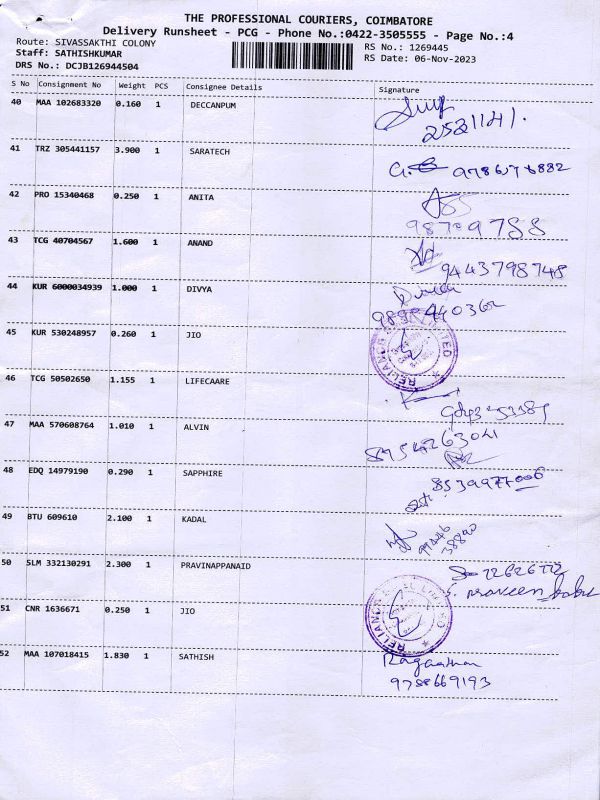 THE PROFESSIONAL COURIERS, COIMBATORE
Delivery Runsheet - PCG - Phone No.:0422-3505555 - Page No.:4
Route: SIVASSAKTHI COLONY
RS No.: 1269445
Staff: SATHISHKUMAR
RS Date: 06-Nov-2023
DRS No.: DCJB126944504
S No Consignment No Weight PCS Consignee Details Signature
40 MAA 102683320 0.160 1 DECCANPUM
2521141.
41 TRZ 305441157 3.900 1 SARATECH
9786576882
42 PRO 15340468 0.250 1 ANITA
43 TCG 40704567 1.600 1 ANAND
9443798748
44 KUR 6000034939 1.000 1 DIVYA
45 KUR 530248957 0.260 1 JIO
RELIANCE LIMITED
46 TCG 50502650 1.155 1 LIFECAARE
47 MAA 570608764 1.010 1 ALVIN
8754263041
48 EDQ 14979190 0.290 1 SAPPHIRE
8539977006
49 BTU 609610 2.100 1 KADAL
50 SLM 332130291 2.300 1 PRAVINAPPANAID
S. Praveen babu
51 CNR 1636671 0.250 1 JIO
RELIANCE LIMITED
52 MAA 107018415 1.830 1 SATHISH
9788669193